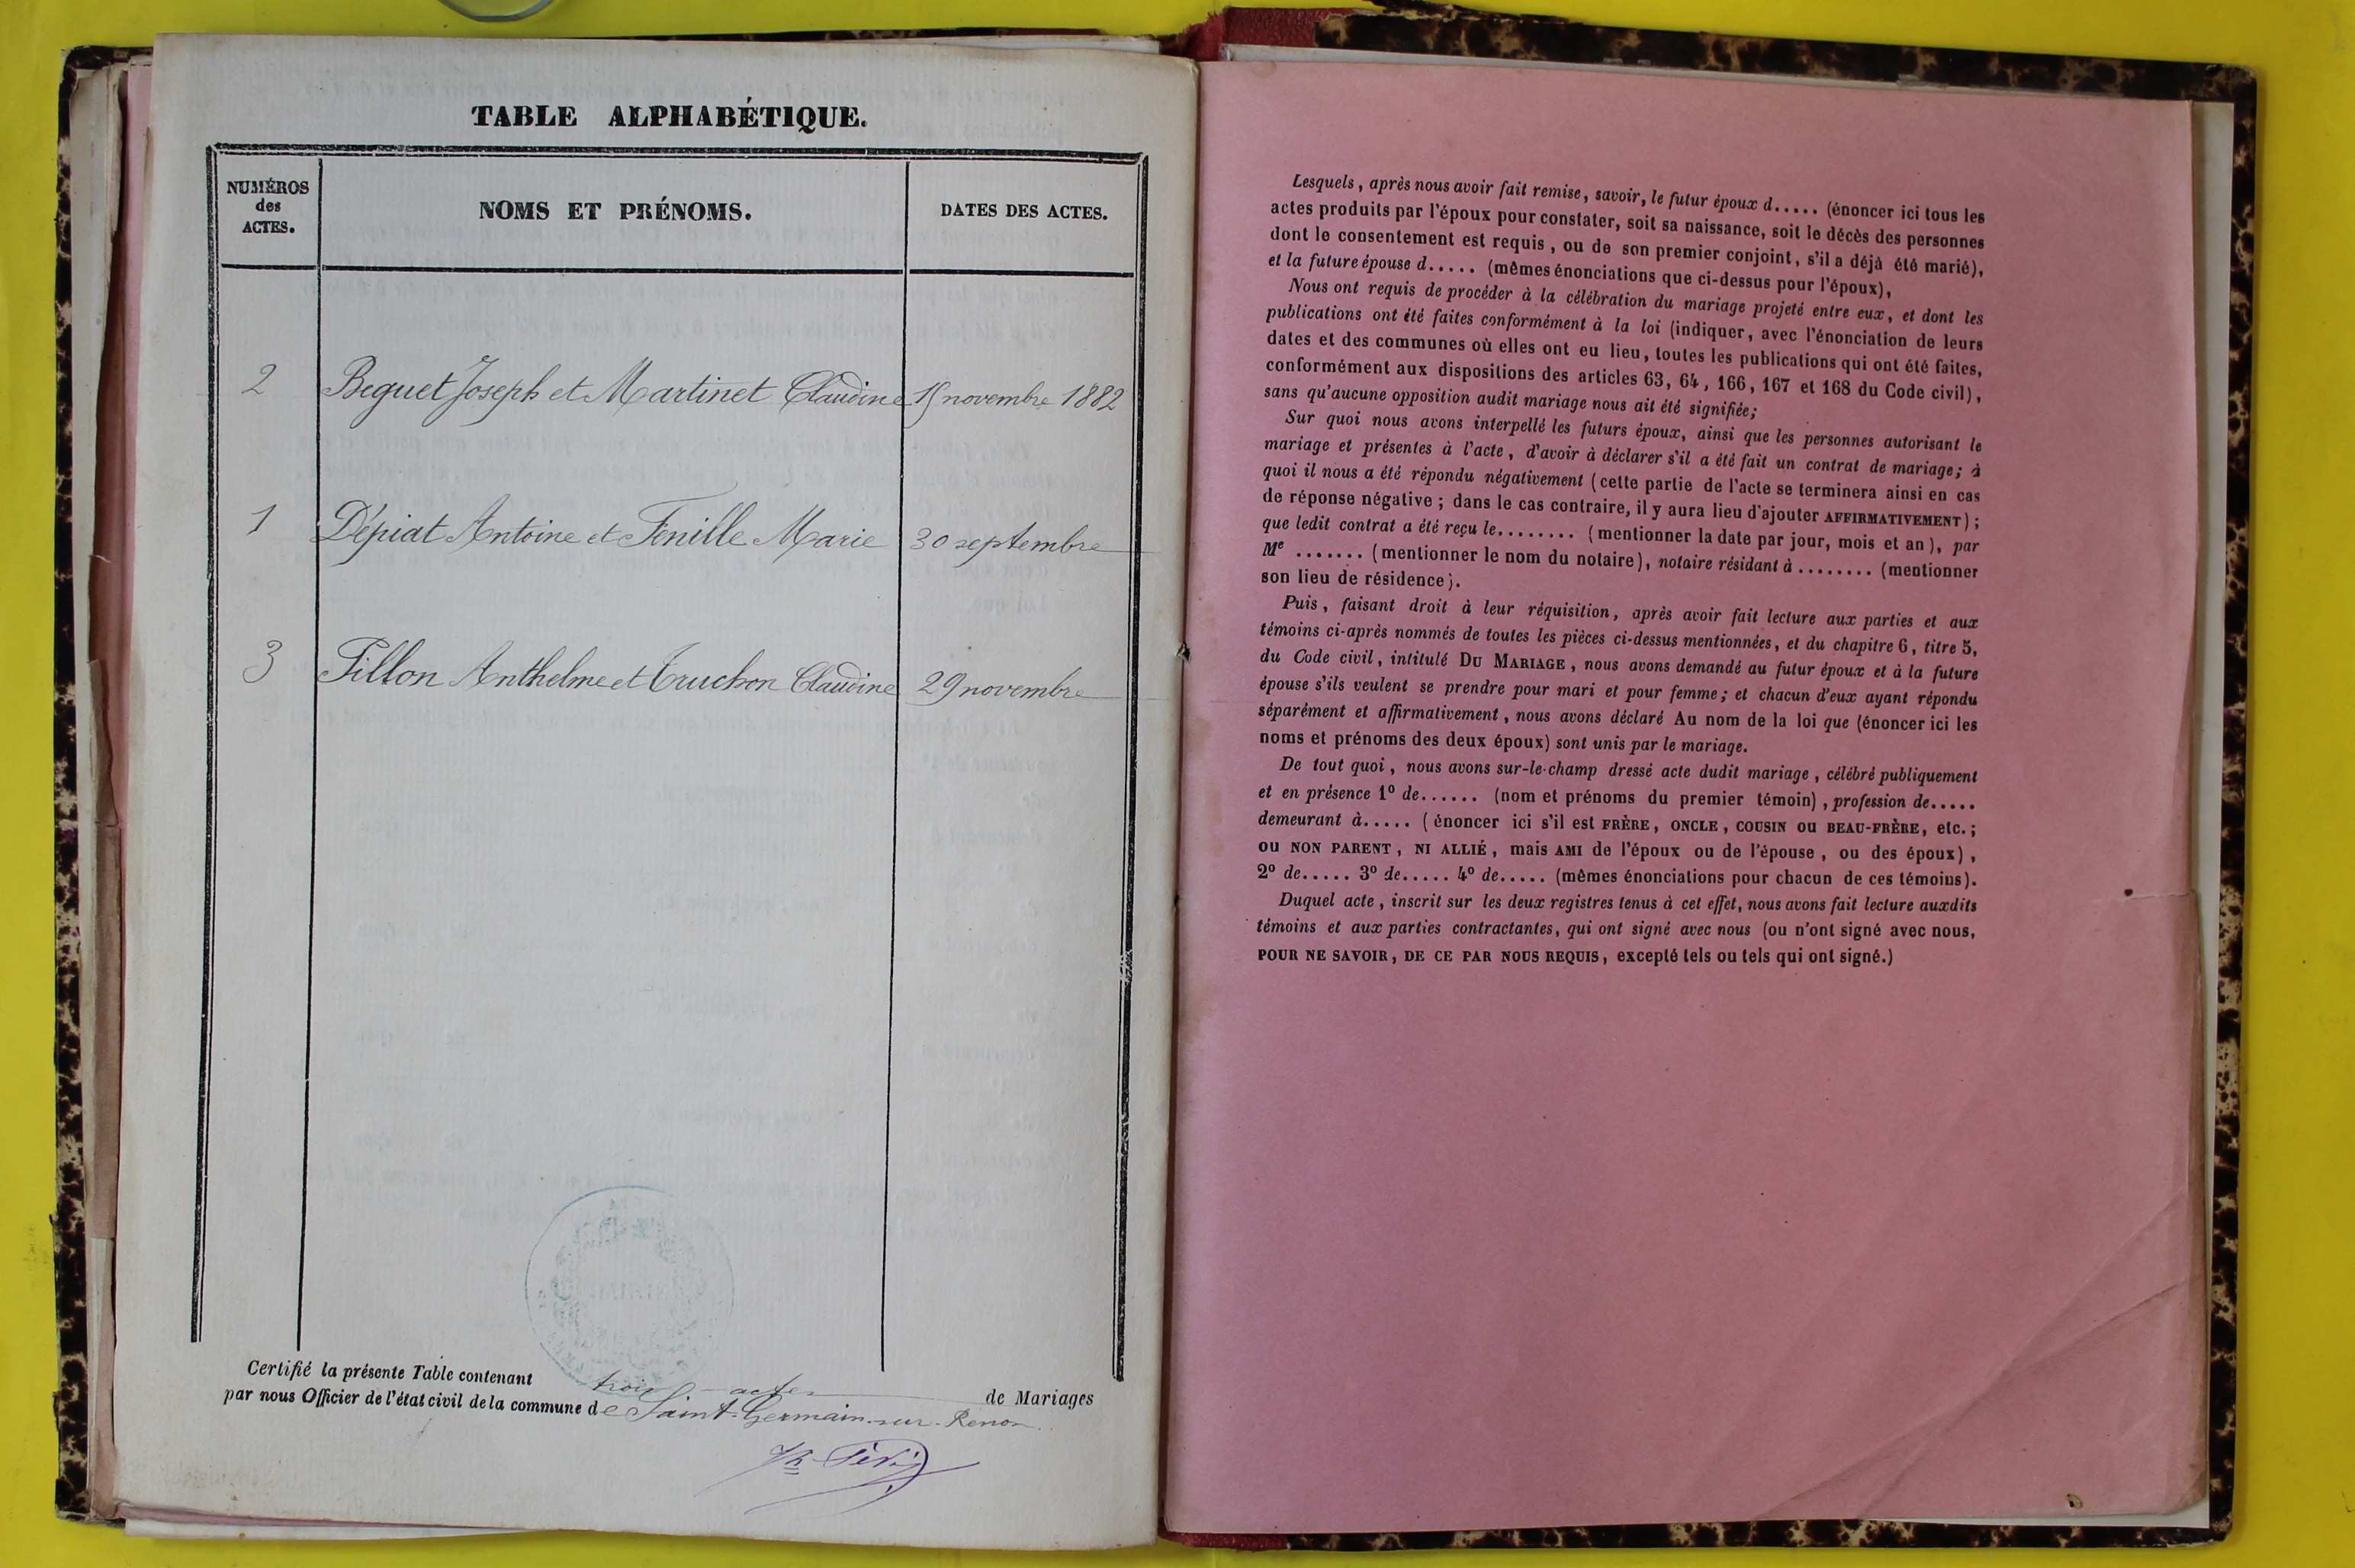 TABLE ALPHABÉTIQUE.
NUMÉROS
des
ACTES.
NOMS ET PRÉNOMS.
DATES DES ACTES.
2 Beguet Joseph et Martinet Claudine 15 novembre 1882
1 Dépiat Antoine et Fenille Marie 30 septembre
3 Pillon Anthelme et Truchon Claudine 29 novembre
Certifié la présente Table contenant trois actes de Mariages
par nous Officier de l'état civil de la commune de Saint-Germain-sur-Renon
Lesquels, après nous avoir fait remise, savoir, le futur époux d..... (énoncer ici tous les
actes produits par l'époux pour constater, soit sa naissance, soit le décès des personnes
dont le consentement est requis, ou de son premier conjoint, s'il a déjà été marié),
et la future épouse d..... (mêmes énonciations que ci-dessus pour l'époux),
Nous ont requis de procéder à la célébration du mariage projeté entre eux, et dont les
publications ont été faites conformément à la loi (indiquer, avec l'énonciation de leurs
dates et des communes où elles ont eu lieu, toutes les publications qui ont été faites,
conformément aux dispositions des articles 63, 64, 166, 167 et 168 du Code civil),
sans qu'aucune opposition audit mariage nous ait été signifiée;
Sur quoi nous avons interpellé les futurs époux, ainsi que les personnes autorisant le
mariage et présentes à l'acte, d'avoir à déclarer s'il a été fait un contrat de mariage; à
quoi il nous a été répondu négativement (cette partie de l'acte se terminera ainsi en cas
de réponse négative; dans le cas contraire, il y aura lieu d'ajouter AFFIRMATIVEMENT);
que ledit contrat a été reçu le........ (mentionner la date par jour, mois et an), par
Me ....... (mentionner le nom du notaire), notaire résidant à ........ (mentionner
son lieu de résidence).
Puis, faisant droit à leur réquisition, après avoir fait lecture aux parties et aux
témoins ci-après nommés de toutes les pièces ci-dessus mentionnées, et du chapitre 6, titre 5,
du Code civil, intitulé DU MARIAGE, nous avons demandé au futur époux et à la future
épouse s'ils veulent se prendre pour mari et pour femme; et chacun d'eux ayant répondu
séparément et affirmativement, nous avons déclaré Au nom de la loi que (énoncer ici les
noms et prénoms des deux époux) sont unis par le mariage.
De tout quoi, nous avons sur-le-champ dressé acte dudit mariage, célébré publiquement
et en présence 1º de...... (nom et prénoms du premier témoin), profession de.....
demeurant à..... (énoncer ici s'il est FRÈRE, ONCLE, COUSIN ou BEAU-FRÈRE, etc.;
ou NON PARENT, NI ALLIÉ, mais AMI de l'époux ou de l'épouse, ou des époux),
2º de..... 3º de..... 4º de..... (mêmes énonciations pour chacun de ces témoins).
Duquel acte, inscrit sur les deux registres tenus à cet effet, nous avons fait lecture auxdits
témoins et aux parties contractantes, qui ont signé avec nous (ou n'ont signé avec nous,
POUR NE SAVOIR, DE CE PAR NOUS REQUIS, excepté tels ou tels qui ont signé.)